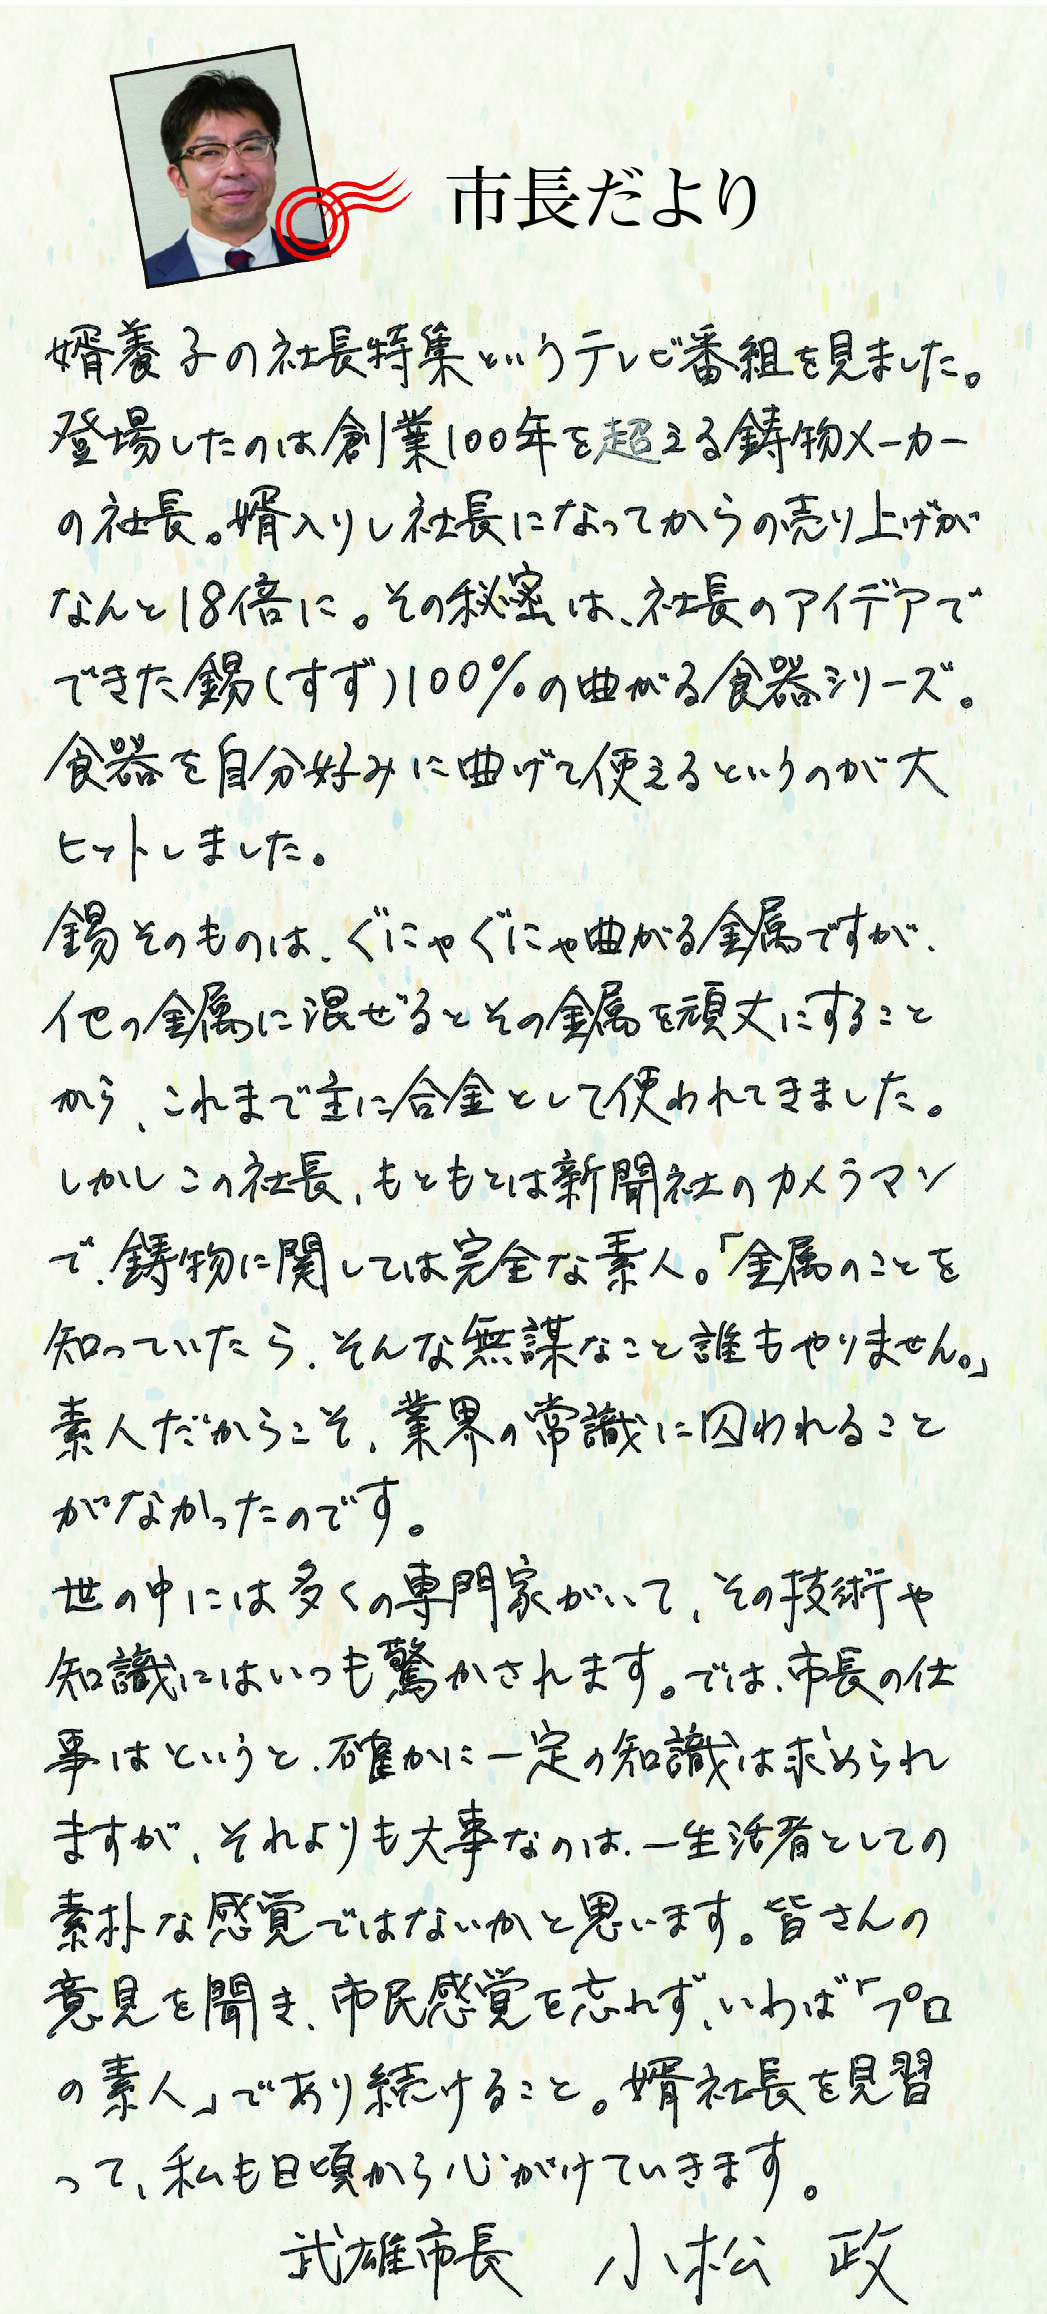 市長だより
婿養子の社長特集というテレビ番組を見ました。
登場したのは創業100年を超える鋳物メーカー
の社長。婿入りし社長になってからの売り上げが
なんと18倍に。その秘密は、社長のアイデアで
できた錫(すず)100%の曲がる食器シリーズ。
食器を自分好みに曲げて使えるというのが大
ヒットしました。
錫そのものは、ぐにゃぐにゃ曲がる金属ですが、
他の金属に混ぜるとその金属を頑丈にすること
から、これまで主に合金として使われてきました。
しかしこの社長、もともとは新聞社のカメラマン
で、鋳物に関しては完全な素人。「金属のことを
知っていたら、そんな無謀なこと誰もやりません。」
素人だからこそ、業界の常識に囚われること
がなかったのです。
世の中には多くの専門家がいて、その技術や
知識にはいつも驚かされます。では、市長の仕
事はというと、確かに一定の知識は求められ
ますが、それよりも大事なのは、一生活者としての
素朴な感覚ではないかと思います。皆さんの
意見を聞き、市民感覚を忘れず、いわば「プロ
の素人」であり続けること。婿社長を見習
って、私も日頃から心がけていきます。
武雄市長 小松 政